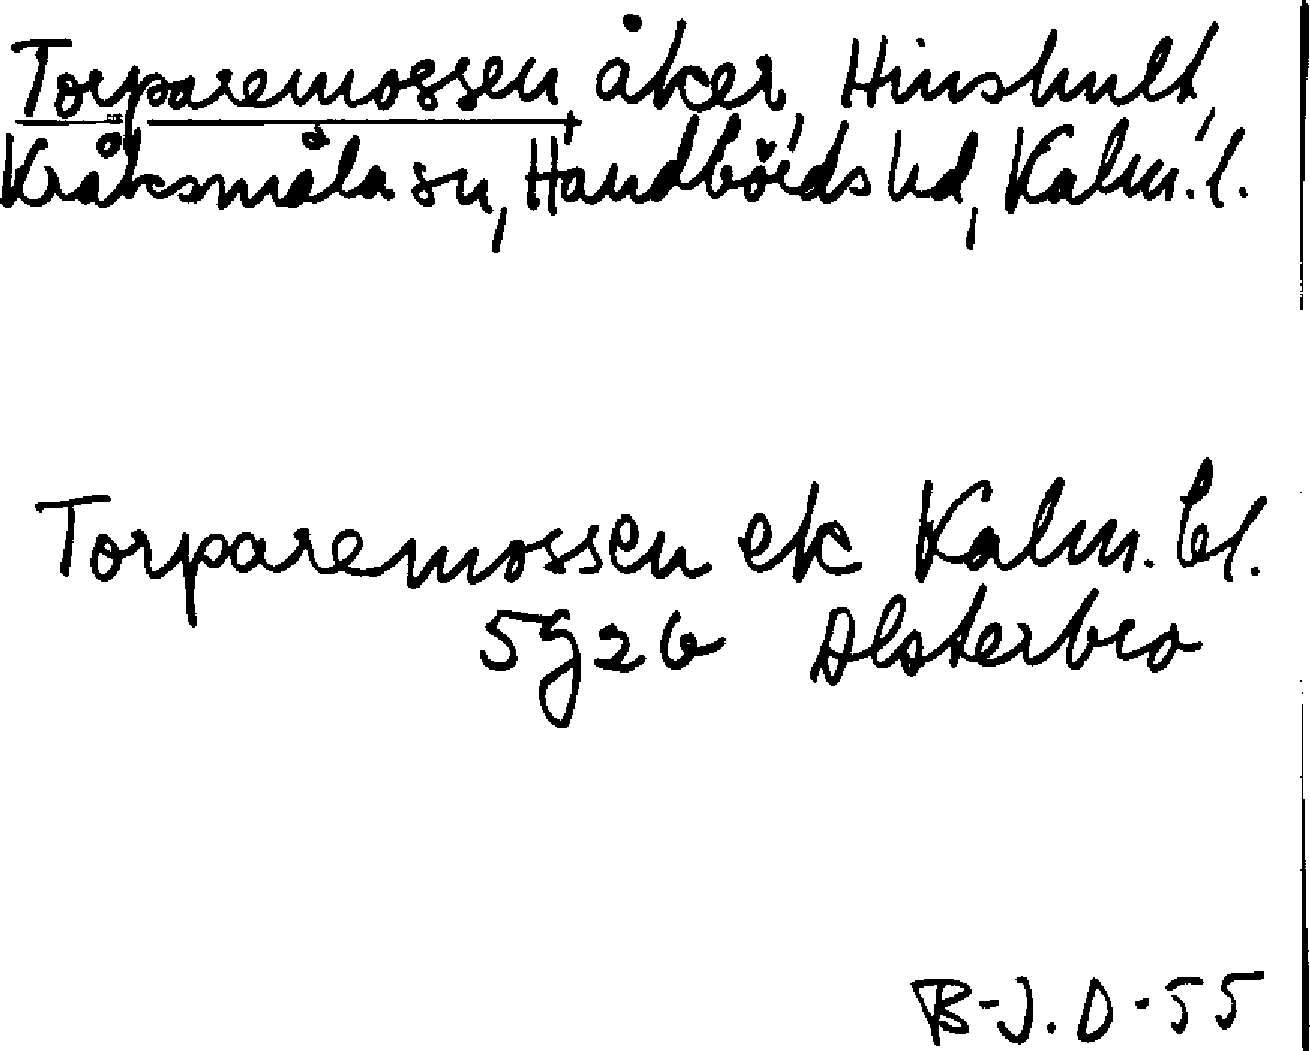 Torparemossen, åker, Hinshult,
Kråksmåla sn, Handbörds hd, Kalm. l.
Torparemossen ek Kalm. bl.
5g2b Alsterbro
B-J.D-55